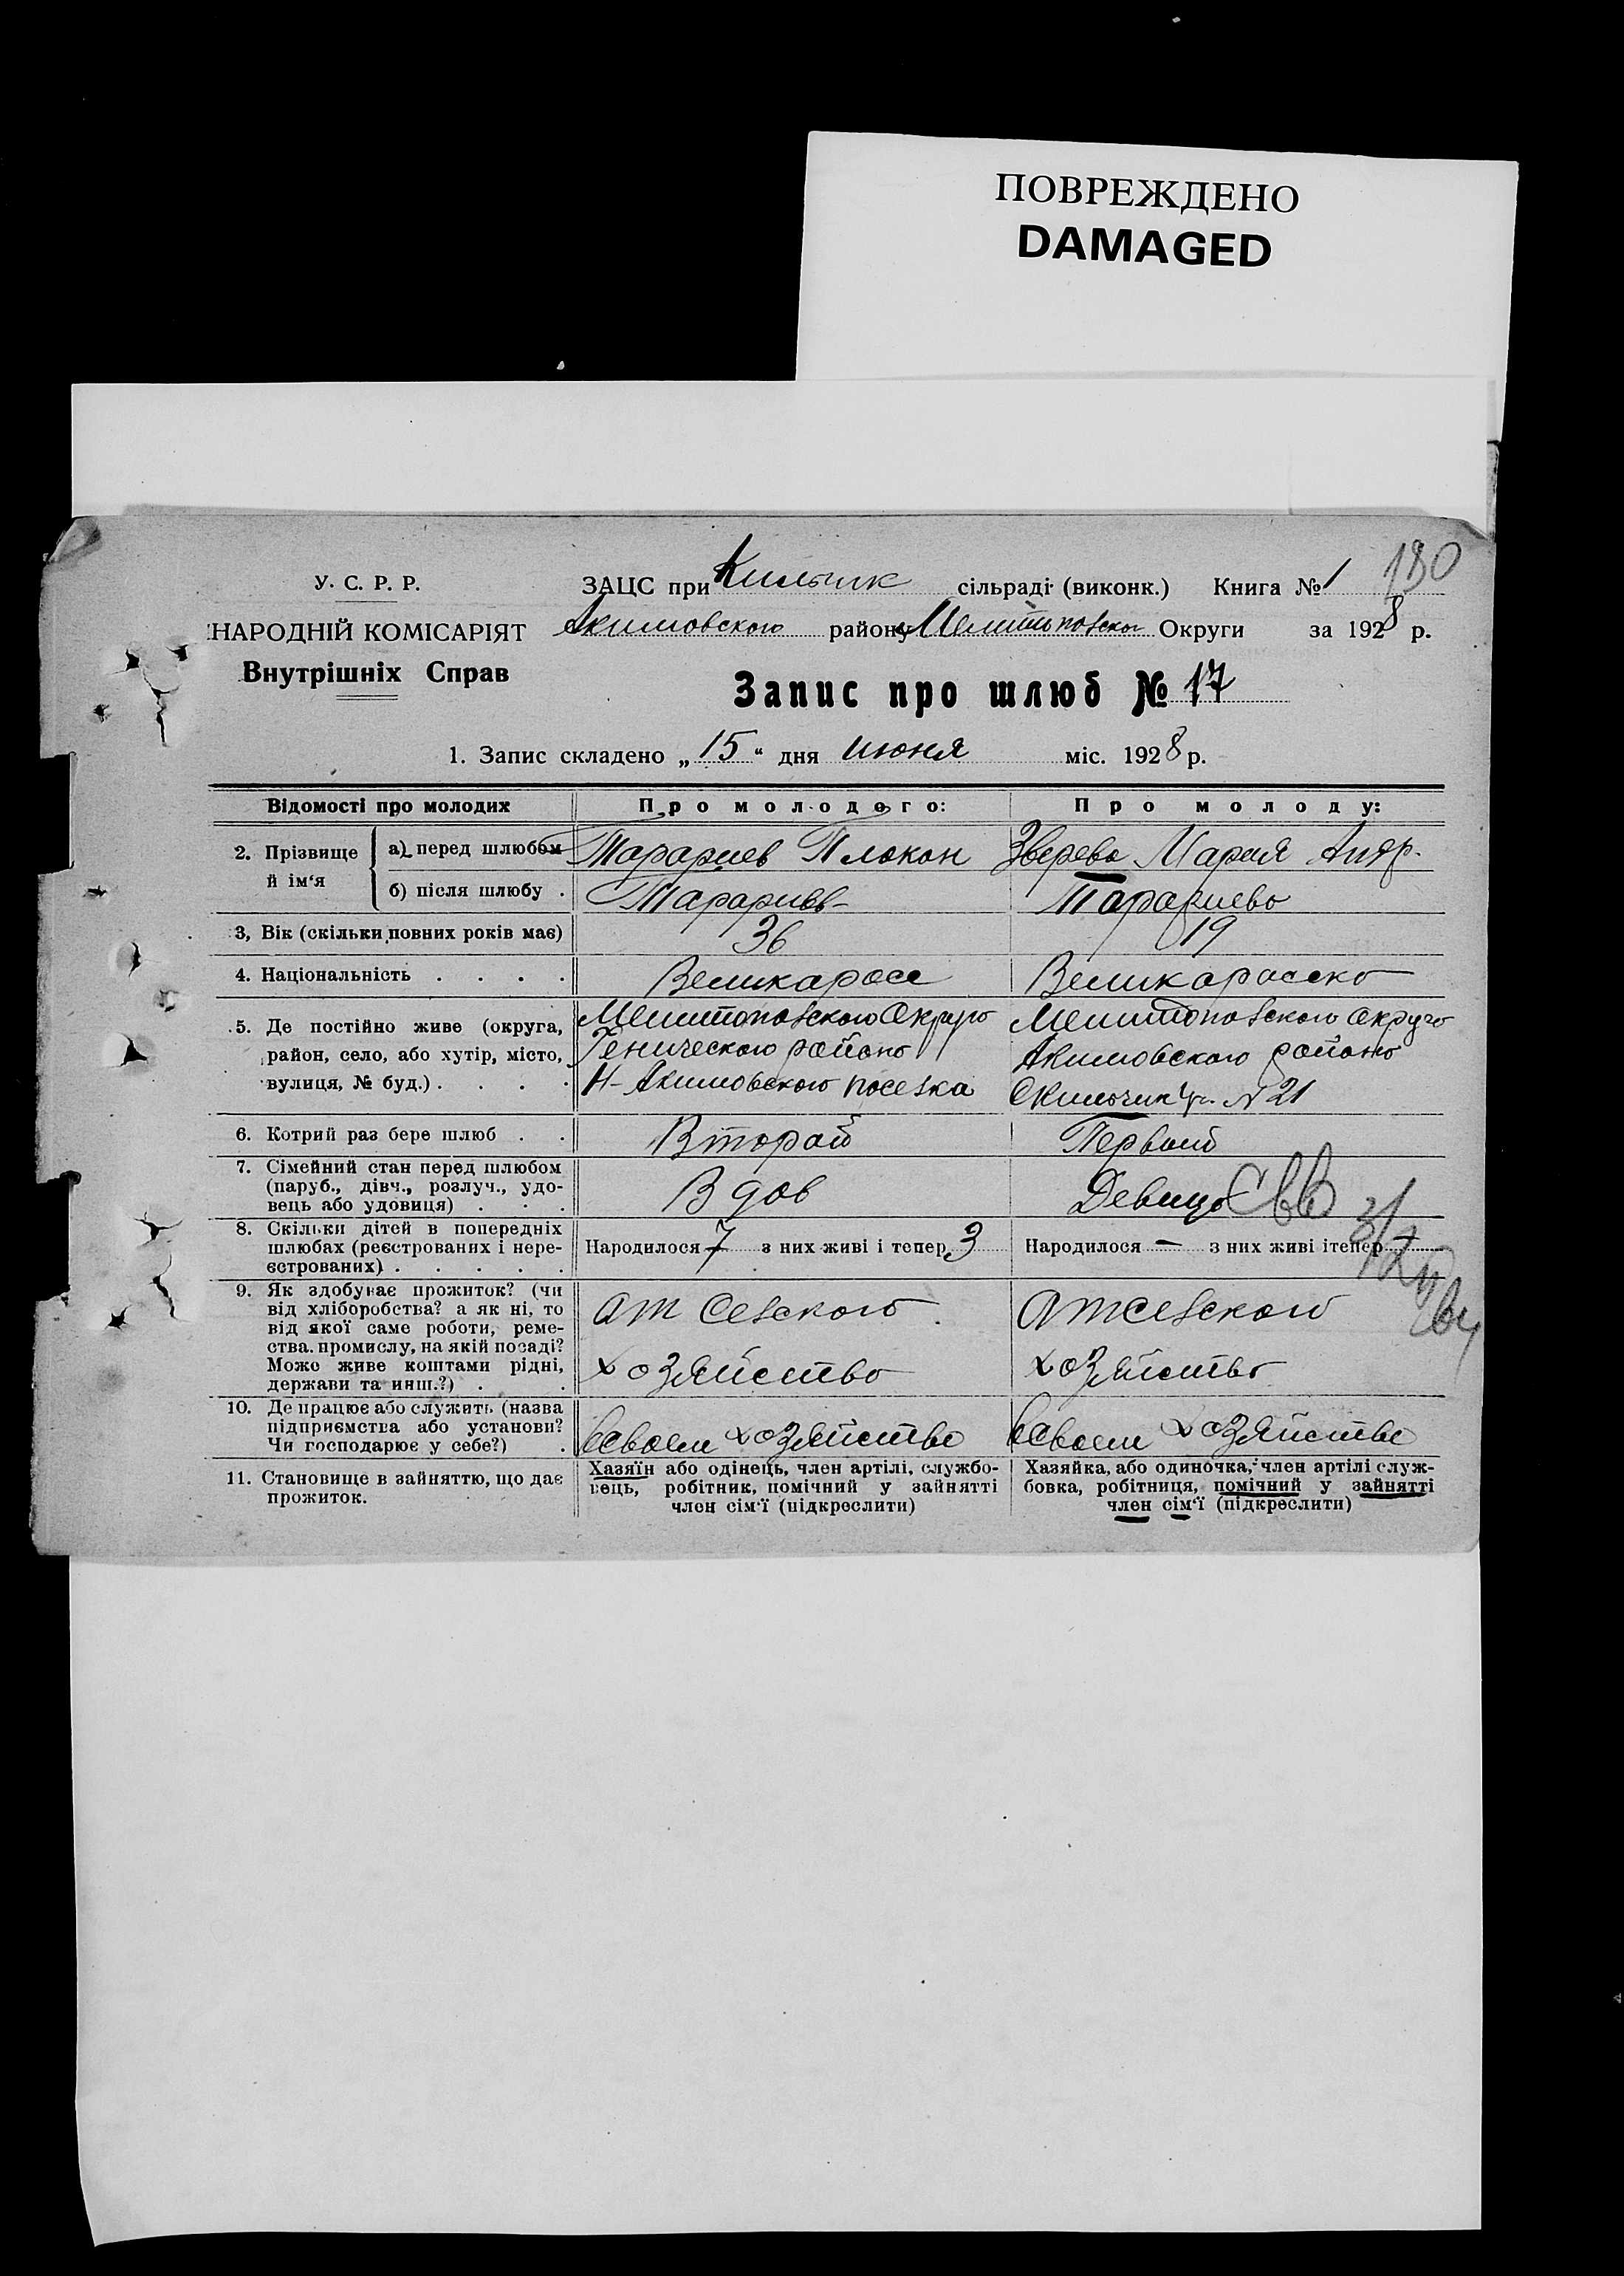 ПОВРЕЖДЕНО
DAMAGED
180
У. С. Р. Р.
НАРОДНІЙ КОМІСАРІЯТ
Внутрішніх Справ
ЗАЦС при сільраді (виконк.) Книга № 1
Акимовского району Мелитопольског Округи за 1928 р.
Запис про шлюб № 17
1. Запис складено „15“ дня июня міс. 1928 р.
Відомості про молодих
Про молодого:
Про молоду:
2. Прізвище й ім‘я
а) перед шлюбом
Тарариев Плокон
Зверева Мария Андр.
б) після шлюбу .
Тарариев
Тарариева
3, Вік (скільки повних років має)
36
19
4. Національність . . . .
Великаросс
Великаросска
5. Де постійно живе (округа,
район, село, або хутір, місто,
вулиця, № буд.) . . . .
Мелитопольского Округа
Генического района
Н-Акимовского поселка
Мелитопольского округа
Акимовского района
№ 21
6. Котрий раз бере шлюб . .
Второй
Первый
7. Сімейний стан перед шлюбом
(паруб., дівч., розлуч., удо-
вець або удовиця) . . .
Вдов
Девица
8. Скільки дітей в попередніх
шлюбах (реєстрованих і нере-
єстрованих) . . . . .
Народилося 7 з них живі і тепер 3
Народилося — з них живі ітепер —
9. Як здобуває прожиток? (чи
від хліборобства? а як ні, то
від якої саме роботи, реме-
ства. промислу, на якій посаді?
Може живе коштами рідні,
держави та инш.?) . .
от сельского
хозяйства
от сельского
хозяйства
10. Де працює або служить (назва
підприємства або установи?
Чи господарює у себе?) .
всвоем хозяйстве
всвоем хозяйстве
11. Становище в зайняттю, що дає
прожиток.
Хазяїн або одінець, член артілі, службо-
вець, робітник, помічний у зайнятті
член сім‘ї (підкреслити)
Хазяйка, або одиночка, член артілі служ-
бовка, робітниця, помічний у зайнятті
член сім‘ї (підкреслити)